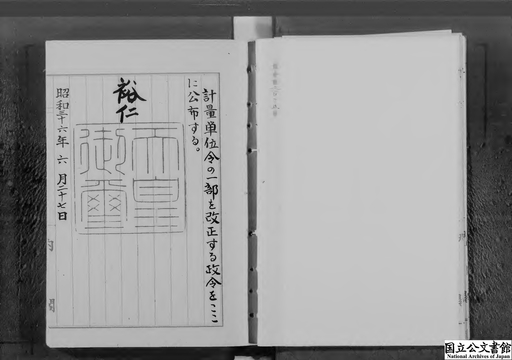 計量単位令の一部を改正する政令をここ
に公布する。
裕仁
天皇
御璽
昭和三十六年六月二十七日
国立公文書館
National Archives of Japan